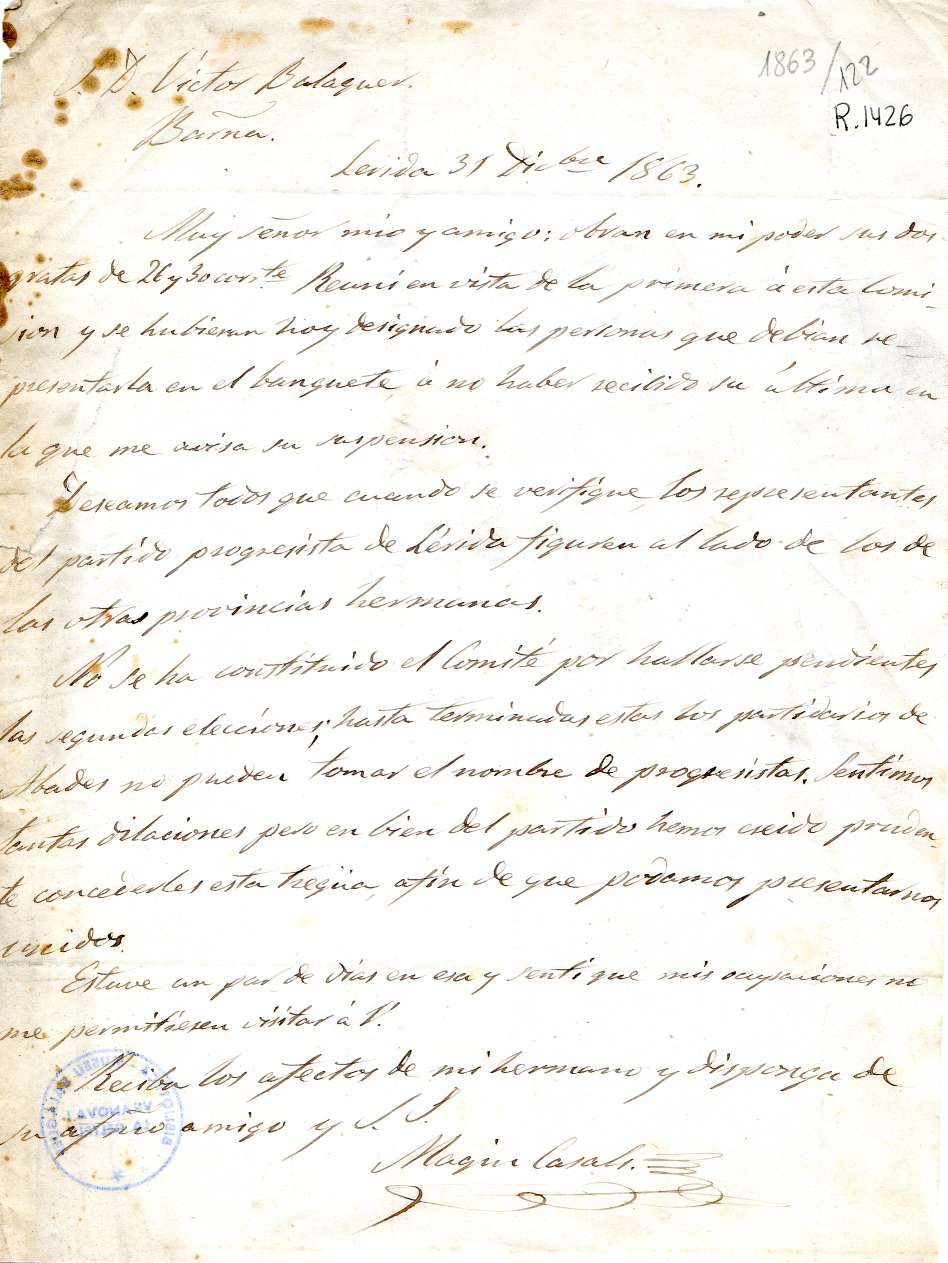 S. D. Víctor Balaguer.
1863/122
R.1426
Barña.
Lerida 31 Dicbre 1863.
Muy señor mio y amigo: obran en mi poder sus dos
gratas de 26 y 30 corrte Reuní en vista de la primera á esta Comi-
sion y se hubieran hoy designado las personas que debian re-
presentarla en el banquete, á no haber recibido su última en
la que me avisa su suspension.
Deseamos todos que cuando se verifique, los representantes
del partido progresista de Lérida figuren al lado de los de
las otras provincias hermanas.
No se ha constituido el Comité por hallarse pendientes
las segundas elecciones; hasta terminadas estas los partidarios de
Abades no pueden tomar el nombre de progresistas. Sentimos
tantas dilaciones pero en bien del partido hemos creido pruden-
te concederles esta tregüa, afin de que podamos presentarnos
unidos.
Estuve un par de dias en esa y sentí que mis ocupaciones no
me permitiesen visitar á V.
Reciba los afectos de mi hermano y disponga de
su afmo amigo y S. S.
Magin Casals.
BIBLIOTECA MUSEU BALAGUER
VILANOVA I
LA GELTRÚ